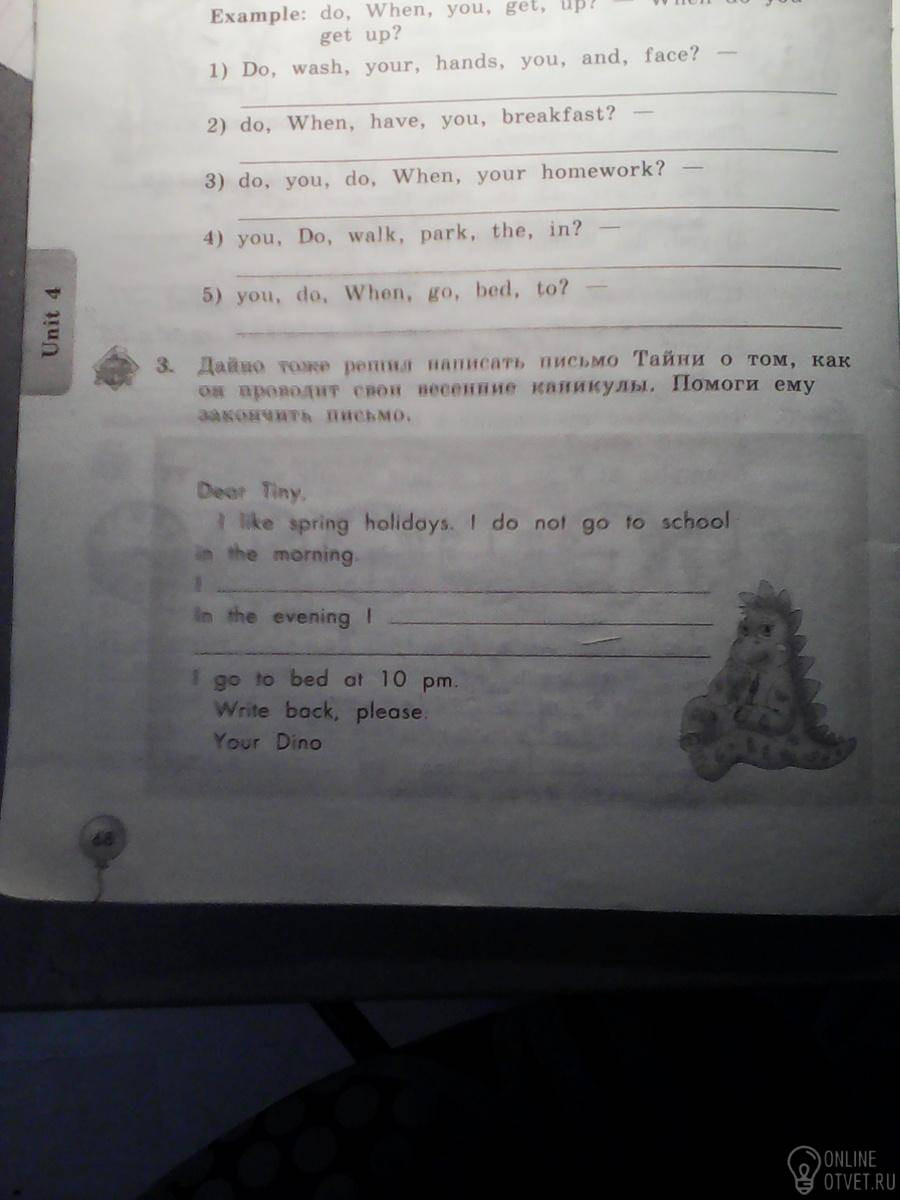 Example: do, When, you, get, up? — When do you
get up?
1) Do, wash, your, hands, you, and, face? —
2) do, When, have, you, breakfast? —
3) do, you, do, When, your homework? —
4) you, Do, walk, park, the, in? —
5) you, do, When, go, bed, to? —
Unit 4
3. Дайно тоже решил написать письмо Тайни о том, как
он проводит свои весенние каникулы. Помоги ему
закончить письмо.
Dear Tiny,
I like spring holidays. I do not go to school
in the morning.
I
In the evening I
I go to bed at 10 pm.
Write back, please.
Your Dino
68
ONLINE
OTVET.RU